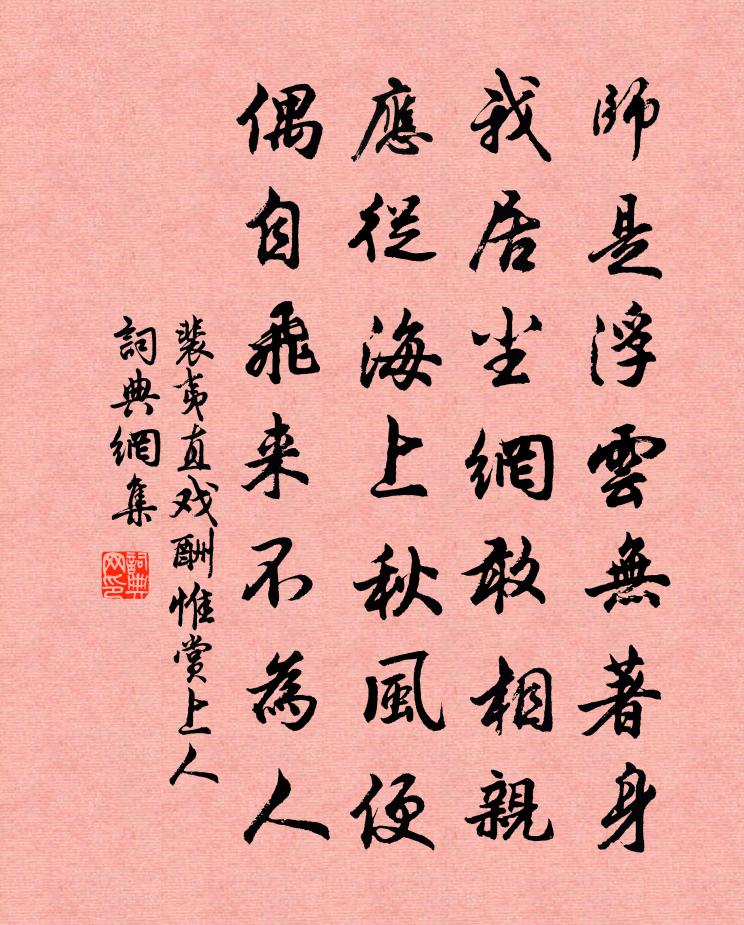 師是浮雲無著身
我居尘網敢相親
應從海上秋風便
偶自飛来不為人
裴夷直戏酬惟賞上人
詞典網集
詞典
网印